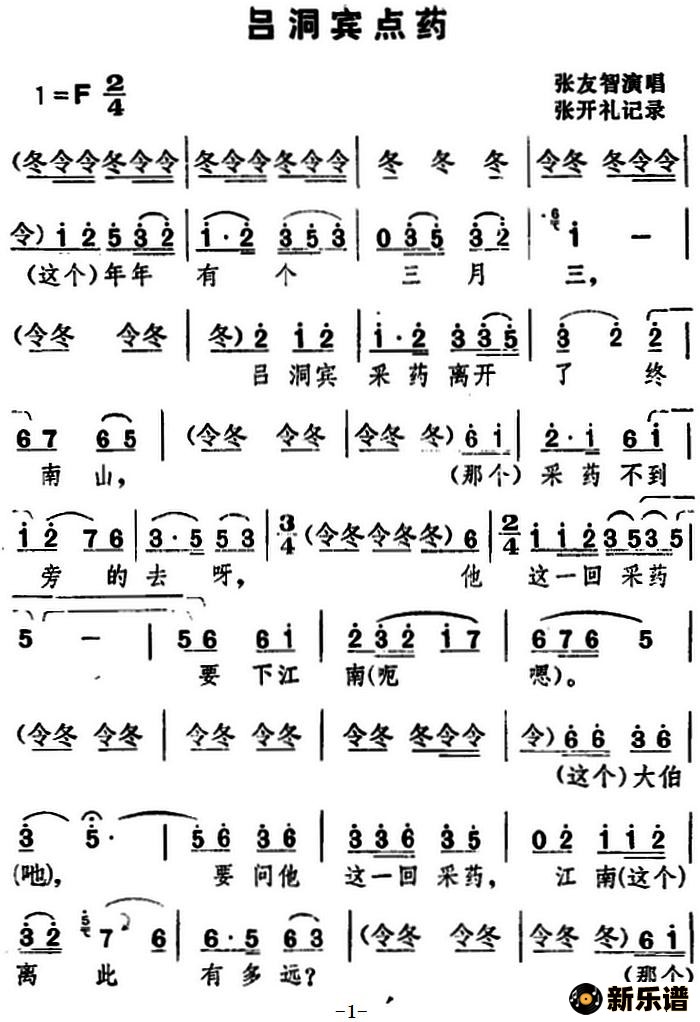 吕洞宾点药
1=F 2/4
张友智演唱
张开礼记录
(冬令令冬令令 | 冬令令冬令令 | 冬 冬 冬 | 令冬 冬令令 |
令) i 2 5 3 2 | i · 2 3 5 3 | 0 3 5 3 2 | 6 i — |
(这个)年年 有 个 三 月 三,
(令冬 令冬 | 冬) 2 i 2 | i · 2 3 3 5 | 3 2 2 |
吕 洞宾 采 药 离开 了 终
6 7 6 5 | (令冬 令冬 | 令冬 冬) 6 i | 2 · i 6 i |
南 山, (那个) 采 药 不到
i 2 7 6 | 3 · 5 5 3 | 3/4 (令冬令冬冬) 6 | 2/4 i i 2 3 5 3 5 |
旁 的 去 呀, 他 这一回 采药
5 — | 5 6 6 i | 2 3 2 i 7 | 6 7 6 5 |
要 下江 南(呃 嗯)。
(令冬 令冬 | 令冬 令冬 | 令冬 冬令令 | 令) 6 6 3 6 |
(这个)大伯
3 5 · | 5 6 3 6 | 3 3 6 3 5 | 0 2 i i 2 |
(吔), 要 问他 这一回 采药, 江 南(这个)
3 2 5 7 6 | 6 · 5 6 3 | (令冬 令冬 | 令冬 冬) 6 i |
离 此 有 多 远? (那个)
-1-
新乐谱